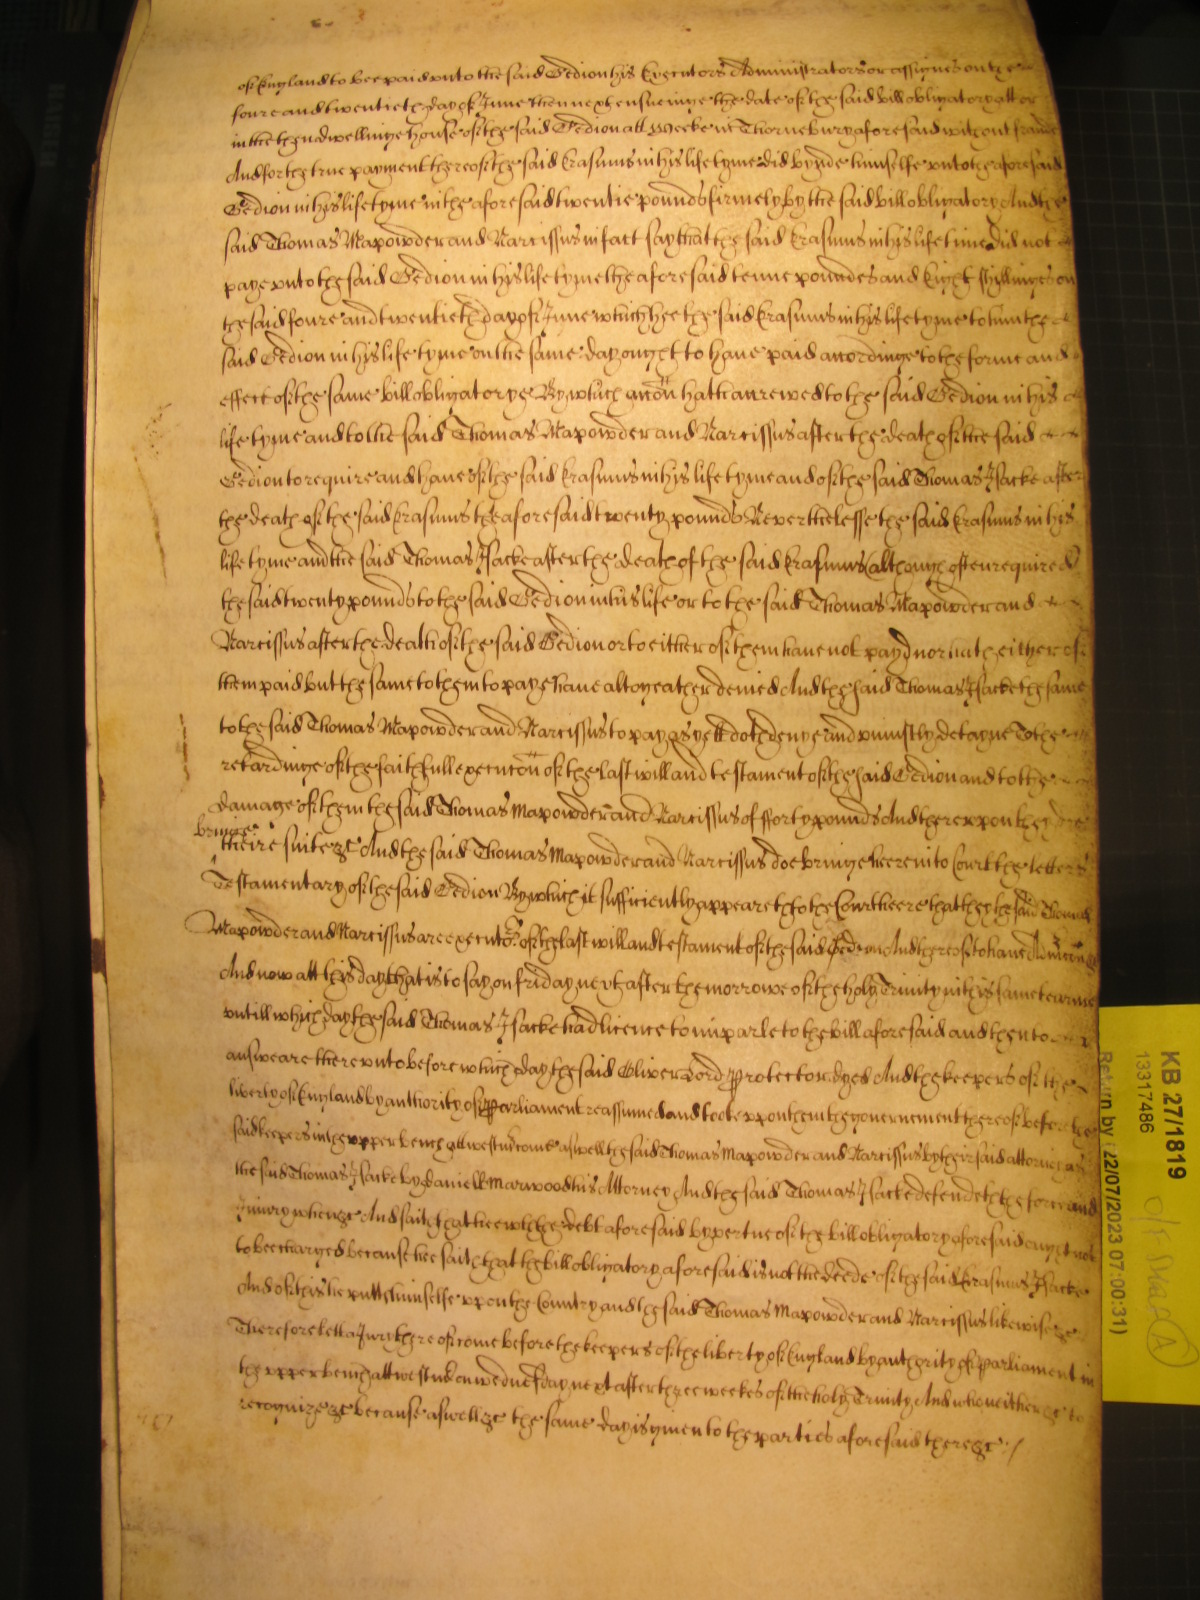 of England to bee paid unto the said Gedion his Executors Administrators or assignes on the
foure and twentieth day of June then next ensueinge the date of the said bill obligatory att or
in the then dwellinge house of the said Gedion att Weeke in Thornebury aforesaid without fraude
And for the true payment thereof the said Erasmus in his life tyme did bynde himselfe unto the aforesaid
Gedion in his life tyme in the aforesaid twentie pounds firmely by the said bill obligatory And the
said Thomas Mapowder and Narcissus in fact say that the said Erasmus in his life time did not
paye unto the said Gedion in his life tyme the aforesaid tenne poundes and Eight shillinges on
the said foure and twentieth day of June which hee the said Erasmus in his life tyme to him the
said Gedion in his life tyme on the same day ought to have paid accordinge to the forme and
effect of the same bill obligatorye By which accon hath accrewed to the said Gedion in his
life tyme and to the said Thomas Mapowder and Narcissus after the death of the said
Gedion to require and have of the said Erasmus in his life tyme and of the said Thomas Isacke after
the death of the said Erasmus the aforesaid twenty pounds Neverthelesse the said Erasmus in his
life tyme and the said Thomas Isacke after the death of the said Erasmus (although often required)
the said twenty pounds to the said Gedion in his life or to the said Thomas Mapowder and
Narcissus after the death of the said Gedion or to either of them have not payd nor hath either of
them paid but the same to them to paye have altogeather denied And the said Thomas Isacke the same
to the said Thomas Mapowder and Narcissus to pay as yett doth denye and uniustly detayne To the
retardinge of the faithfull execucon of the last will and testament of the said Gedion and to the
damage of them the said Thomas Mapowder and Narcissus of fforty pounds And thereupon they
bringe
theire suite &c And the said Thomas Mapowder and Narcissus doe bringe heere into Court the letters
Testamentary of the said Gedion By which it sufficiently appeareth to the Court heere that they the said Thomas
Mapowder and Narcissus are executors of the last will and testament of the said Gedion And thereof to have
And now att this day that is to say on friday next after the morrowe of the holy Trinity in this same tearme
untill which day the said Thomas Isacke had licence to imparle to the bill aforesaid and then to
answeare thereunto before which day the said Oliver Lord Protector dyed And the keepers of the
liberty of England by authority of Parliament reassumed and tooke uppon them the government thereof before the
said keepers in the upper bench att westm come aswell the said Thomas Mapowder and Narcissus by their said attorney as
the said Thomas Isacke by Daniell Marwood his Attorney And the said Thomas Isacke defendeth the force and
Iniury when &c And saith that hee with the debt aforesaid by vertue of the bill obligatory aforesaid ought not
to bee charged because hee saith that the bill obligatory aforesaid is not the deede of the said Erasmus Isacke
And of this he putts himselfe uppon the Country and the said Thomas Mapowder and Narcissus likewise &c
Therefore lett a Jury thereof come before the keepers of the liberty of England by authority of Parliament in
the upper bench att westm on wednesday next after three weekes of the holy Trinity And who neither &c to
recognize &c because aswell &c the same day is given to the parties aforesaid there &c
KB 27/1819
13317486
Return by (22/07/2023 07:00:31)